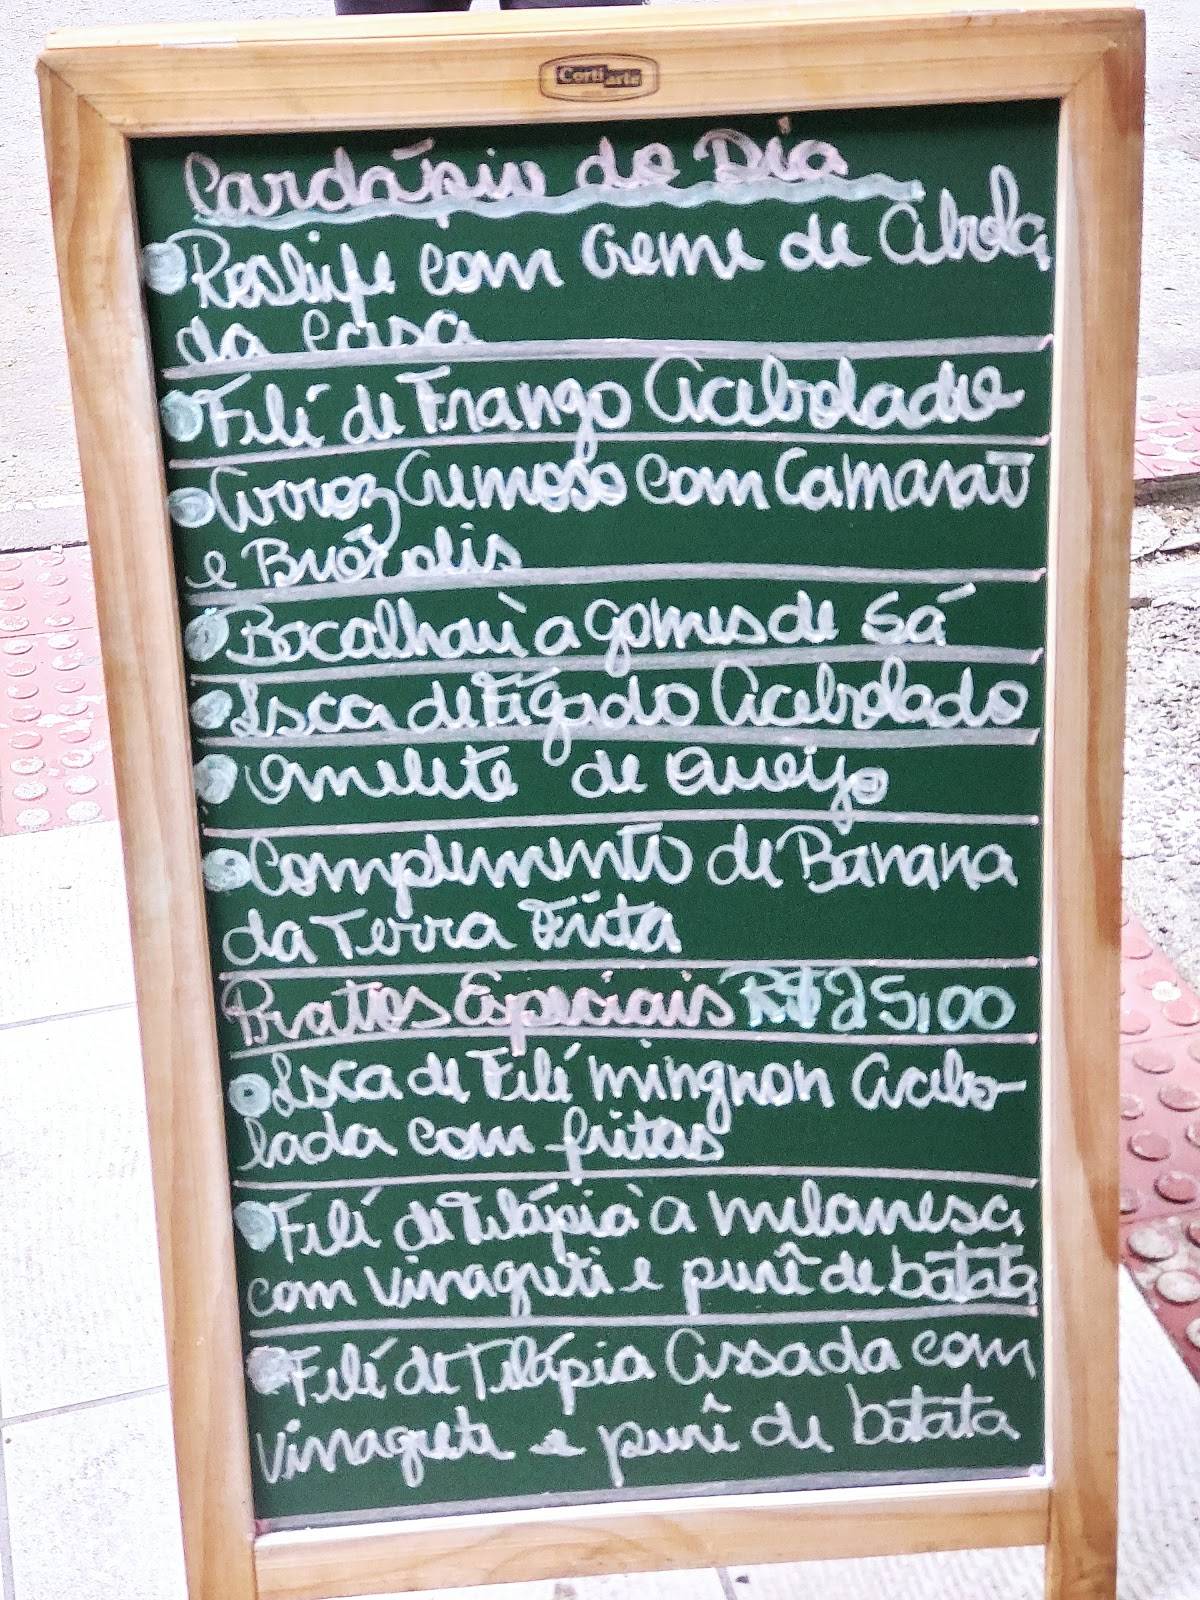 Corti arte
Cardápio do Dia
Rosbife com Creme de Cebola
da Casa
Filé de Frango Acebolado
Arroz Cremoso com Camarão
e Brócolis
Bacalhau à gomes de Sá
Isca de Fígado Acebolado
Omelete de Queijo
Complemento de Banana
da Terra Frita
Pratos Especiais R$ 25,00
Isca de Filé mingnon Acebo-
lada com fritas
Filé de Tilápia à milanesa
com vinagrete e purê de batata
Filé de Tilápia Assada com
vinagrete e purê de batata